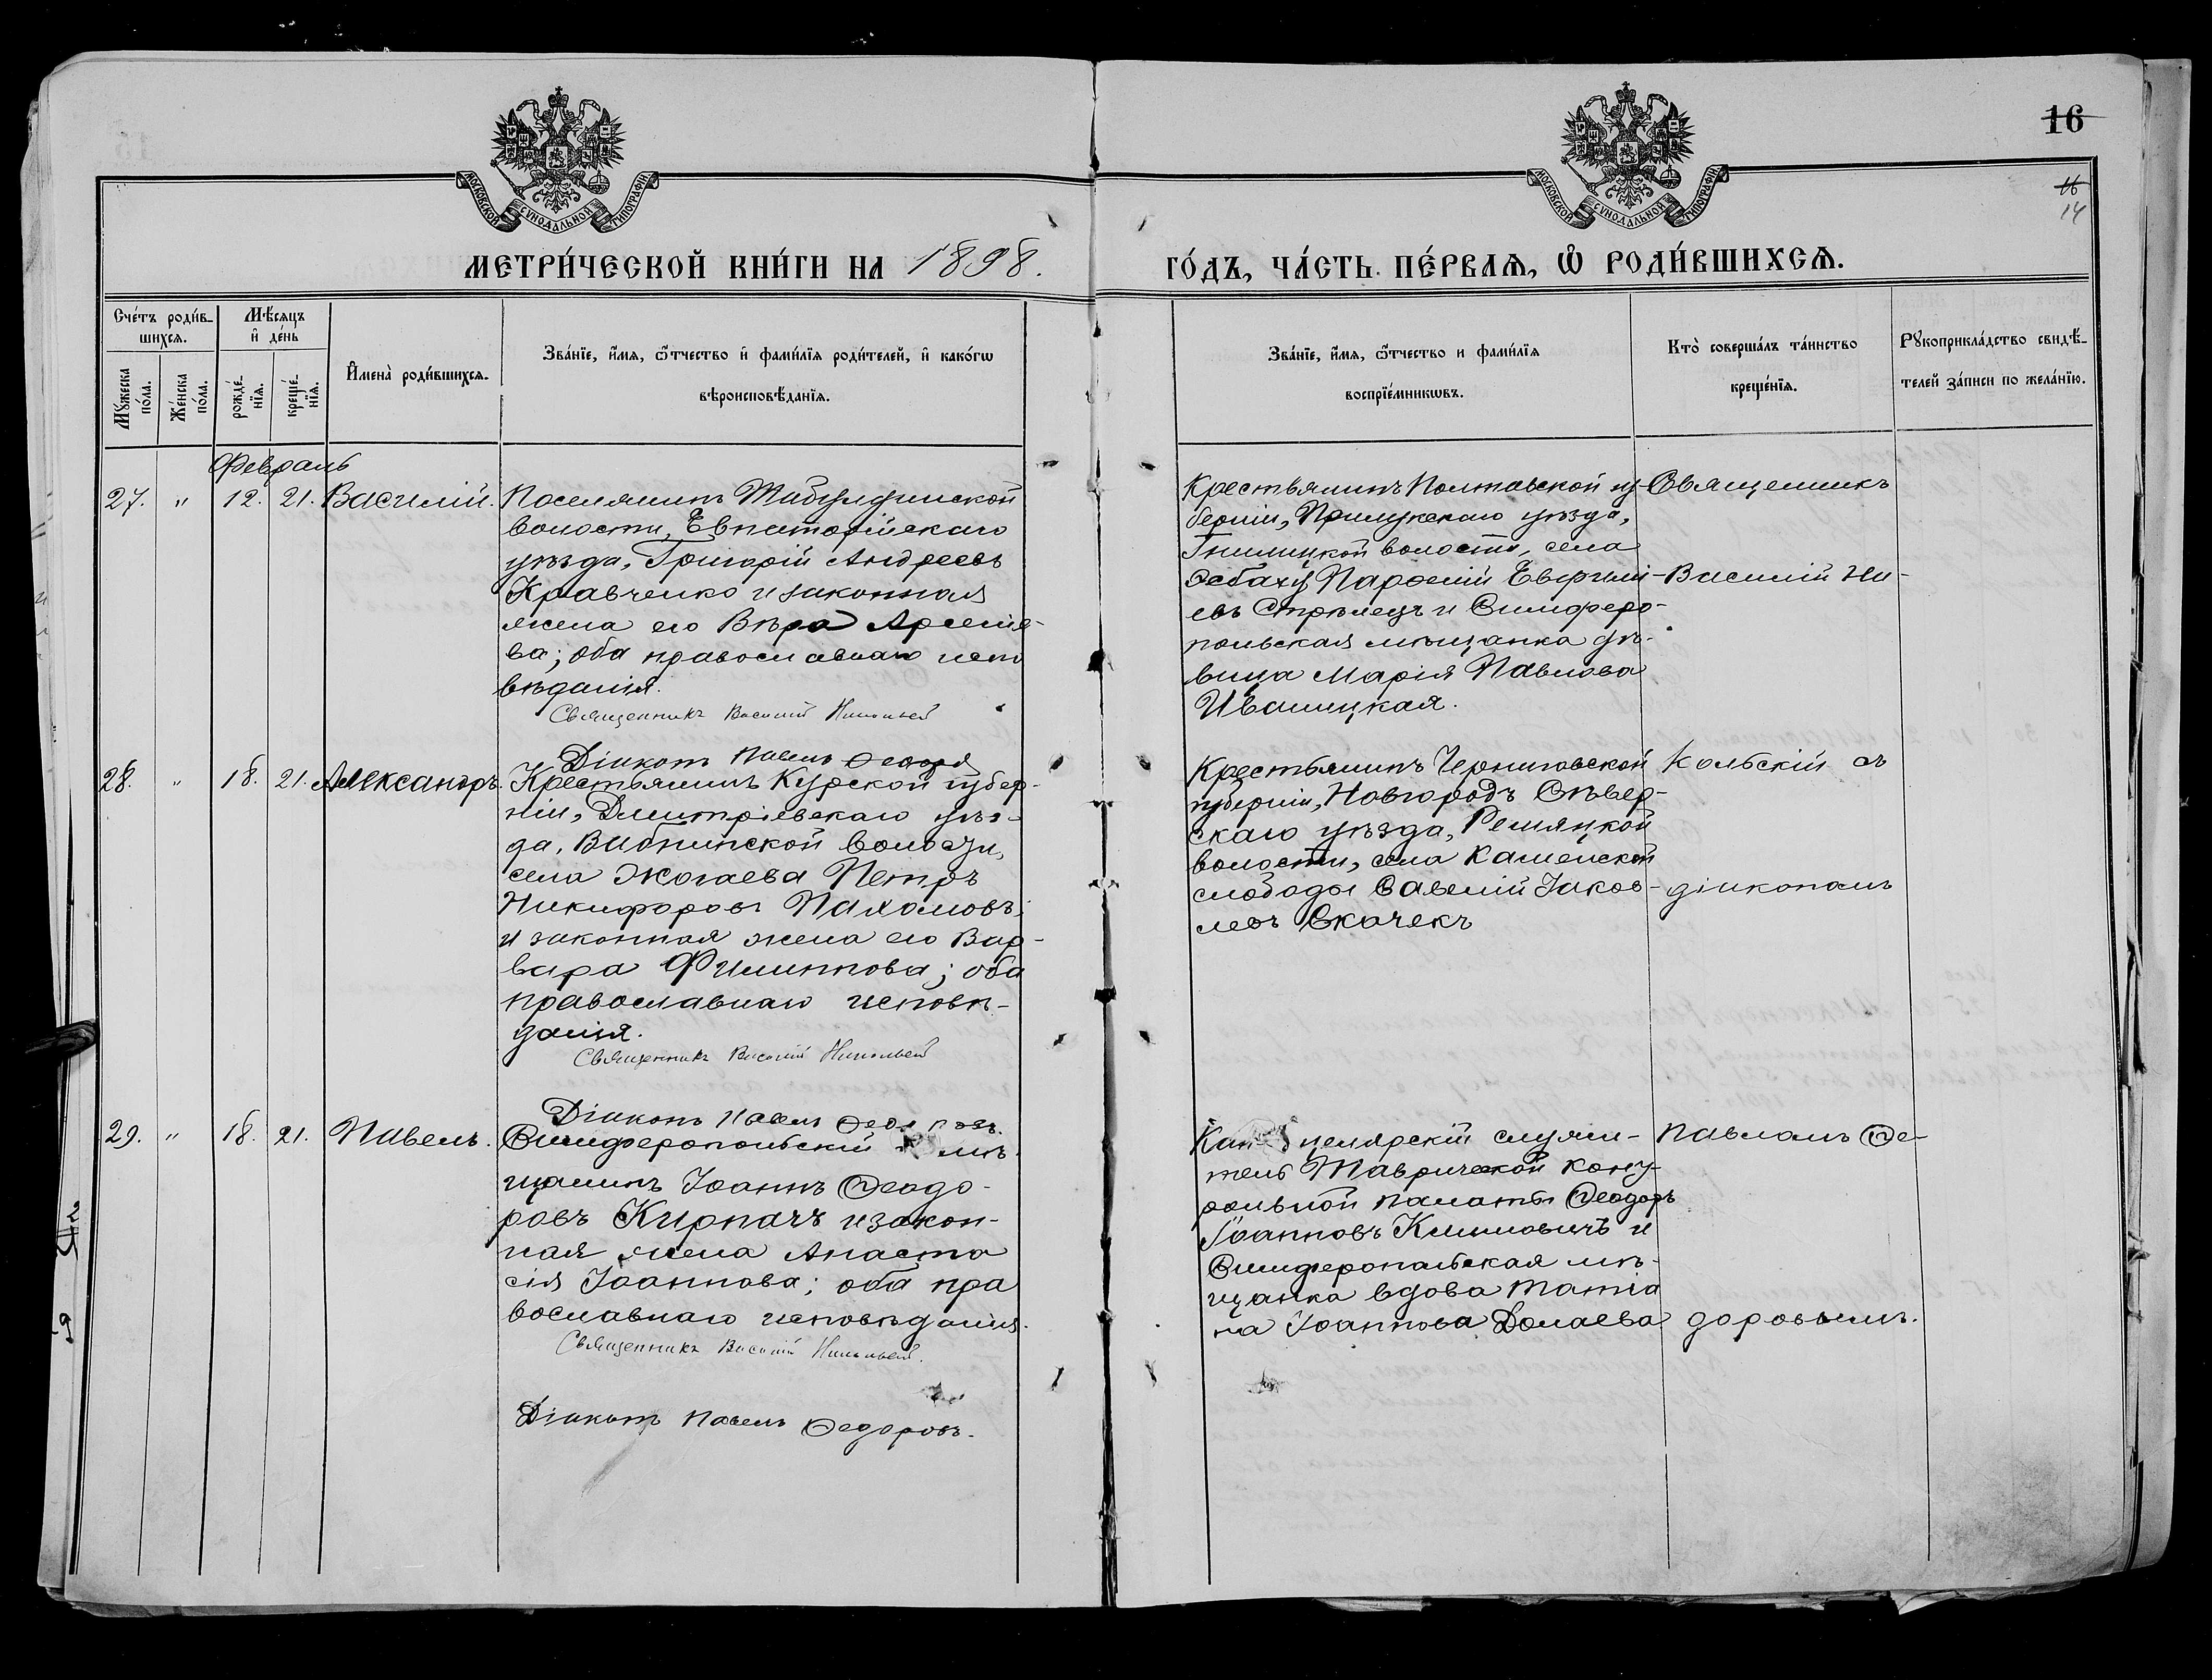 16
16
14
МОСКОВСКОЙ СѴНОДАЛЬНОЙ ТИПОГРАФІИ
МОСКОВСКОЙ СѴНОДАЛЬНОЙ ТИПОГРАФІИ
МЕТРИ́ЧЕСКОЙ КНИ́ГИ НА 1898.
ГО́ДЪ, ЧА́СТЬ ПЕ́РВАѦ, Ѽ РОДИ́ВШИХСѦ.
Сче́тъ роди́в-
шихся.
Му́жеска по́ла.
Же́нска по́ла.
Мѣ́сяцъ
и҆ де́нь
рожде́-
нїя.
креще́-
нїя.
И҆мена̀ роди́вшихся.
Зва́нїе, и҆́мя, ѻ҆́тчество и҆ фами́лїя роди́телей, и҆ како́гѡ
вѣроисповѣ́данїя.
Зва́нїе, и҆́мя, ѻ҆́тчество и фами́лїя
воспрїе́мникѡвъ.
Кто̀ соверша́лъ та́инство
креще́нїя.
Рꙋкоприкла́дство свидѣ́-
телей за́писи по жела́нїю.
Февраль
27. " 12. 21. Василій.
Поселянинъ Табулдинской
волости, Евпаторійскаго
уѣзда, Григорій Андреевъ
Кравченко и законная
жена его Вѣра Арсенье-
ва; оба православнаго испо
вѣданія.
Священникъ Василій Никольскій
Діаконъ Павелъ Ѳеодоровъ
Крестьянинъ Полтавской гу-
берніи, Прилукскаго уѣзда,
Гнилицкой волости, села
Парѳеній Евфимі-
евъ Стрѣлецъ и Симферо-
польская мѣщанка дѣ-
вица Марія Павлова
Иваницкая.
Священникъ
Василій Ни-
28. " 18. 21. Александръ.
Крестьянинъ Курской губер-
ніи, Дмитріевскаго уѣз-
да, волости,
села Жогаева Петръ
Никифоровъ Пахомовъ
и законная жена его Вар-
вара Филиппова; оба
православнаго исповѣ-
данія.
Священникъ Василій Никольскій
Діаконъ Павелъ Ѳеодоровъ.
Крестьянинъ Черниговской
губерніи, Новгородъ Сѣвер-
скаго уѣзда,
волости, села Каменской
слободы Савелій Іаков-
левъ Скачекъ
кольскій съ
діакономъ
29. " 18. 21. Павелъ.
Симферопольскій мѣ-
щанинъ Іоаннъ Ѳеодо-
ровъ Кирпачъ и закон-
ная жена Анаста
сія Іоаннова; оба пра
вославнаго исповѣданія.
Священникъ Василій Никольскій.
Діаконъ Павелъ Ѳедоровъ.
Канцелярскій служи-
тель Таврической конт-
рольной палаты Ѳеодоръ
Іоанновъ Климовичъ и
Симферопольская мѣ-
щанка вдова Татіа
на Іоаннова Долаева
Павломъ Ѳе-
доровымъ.